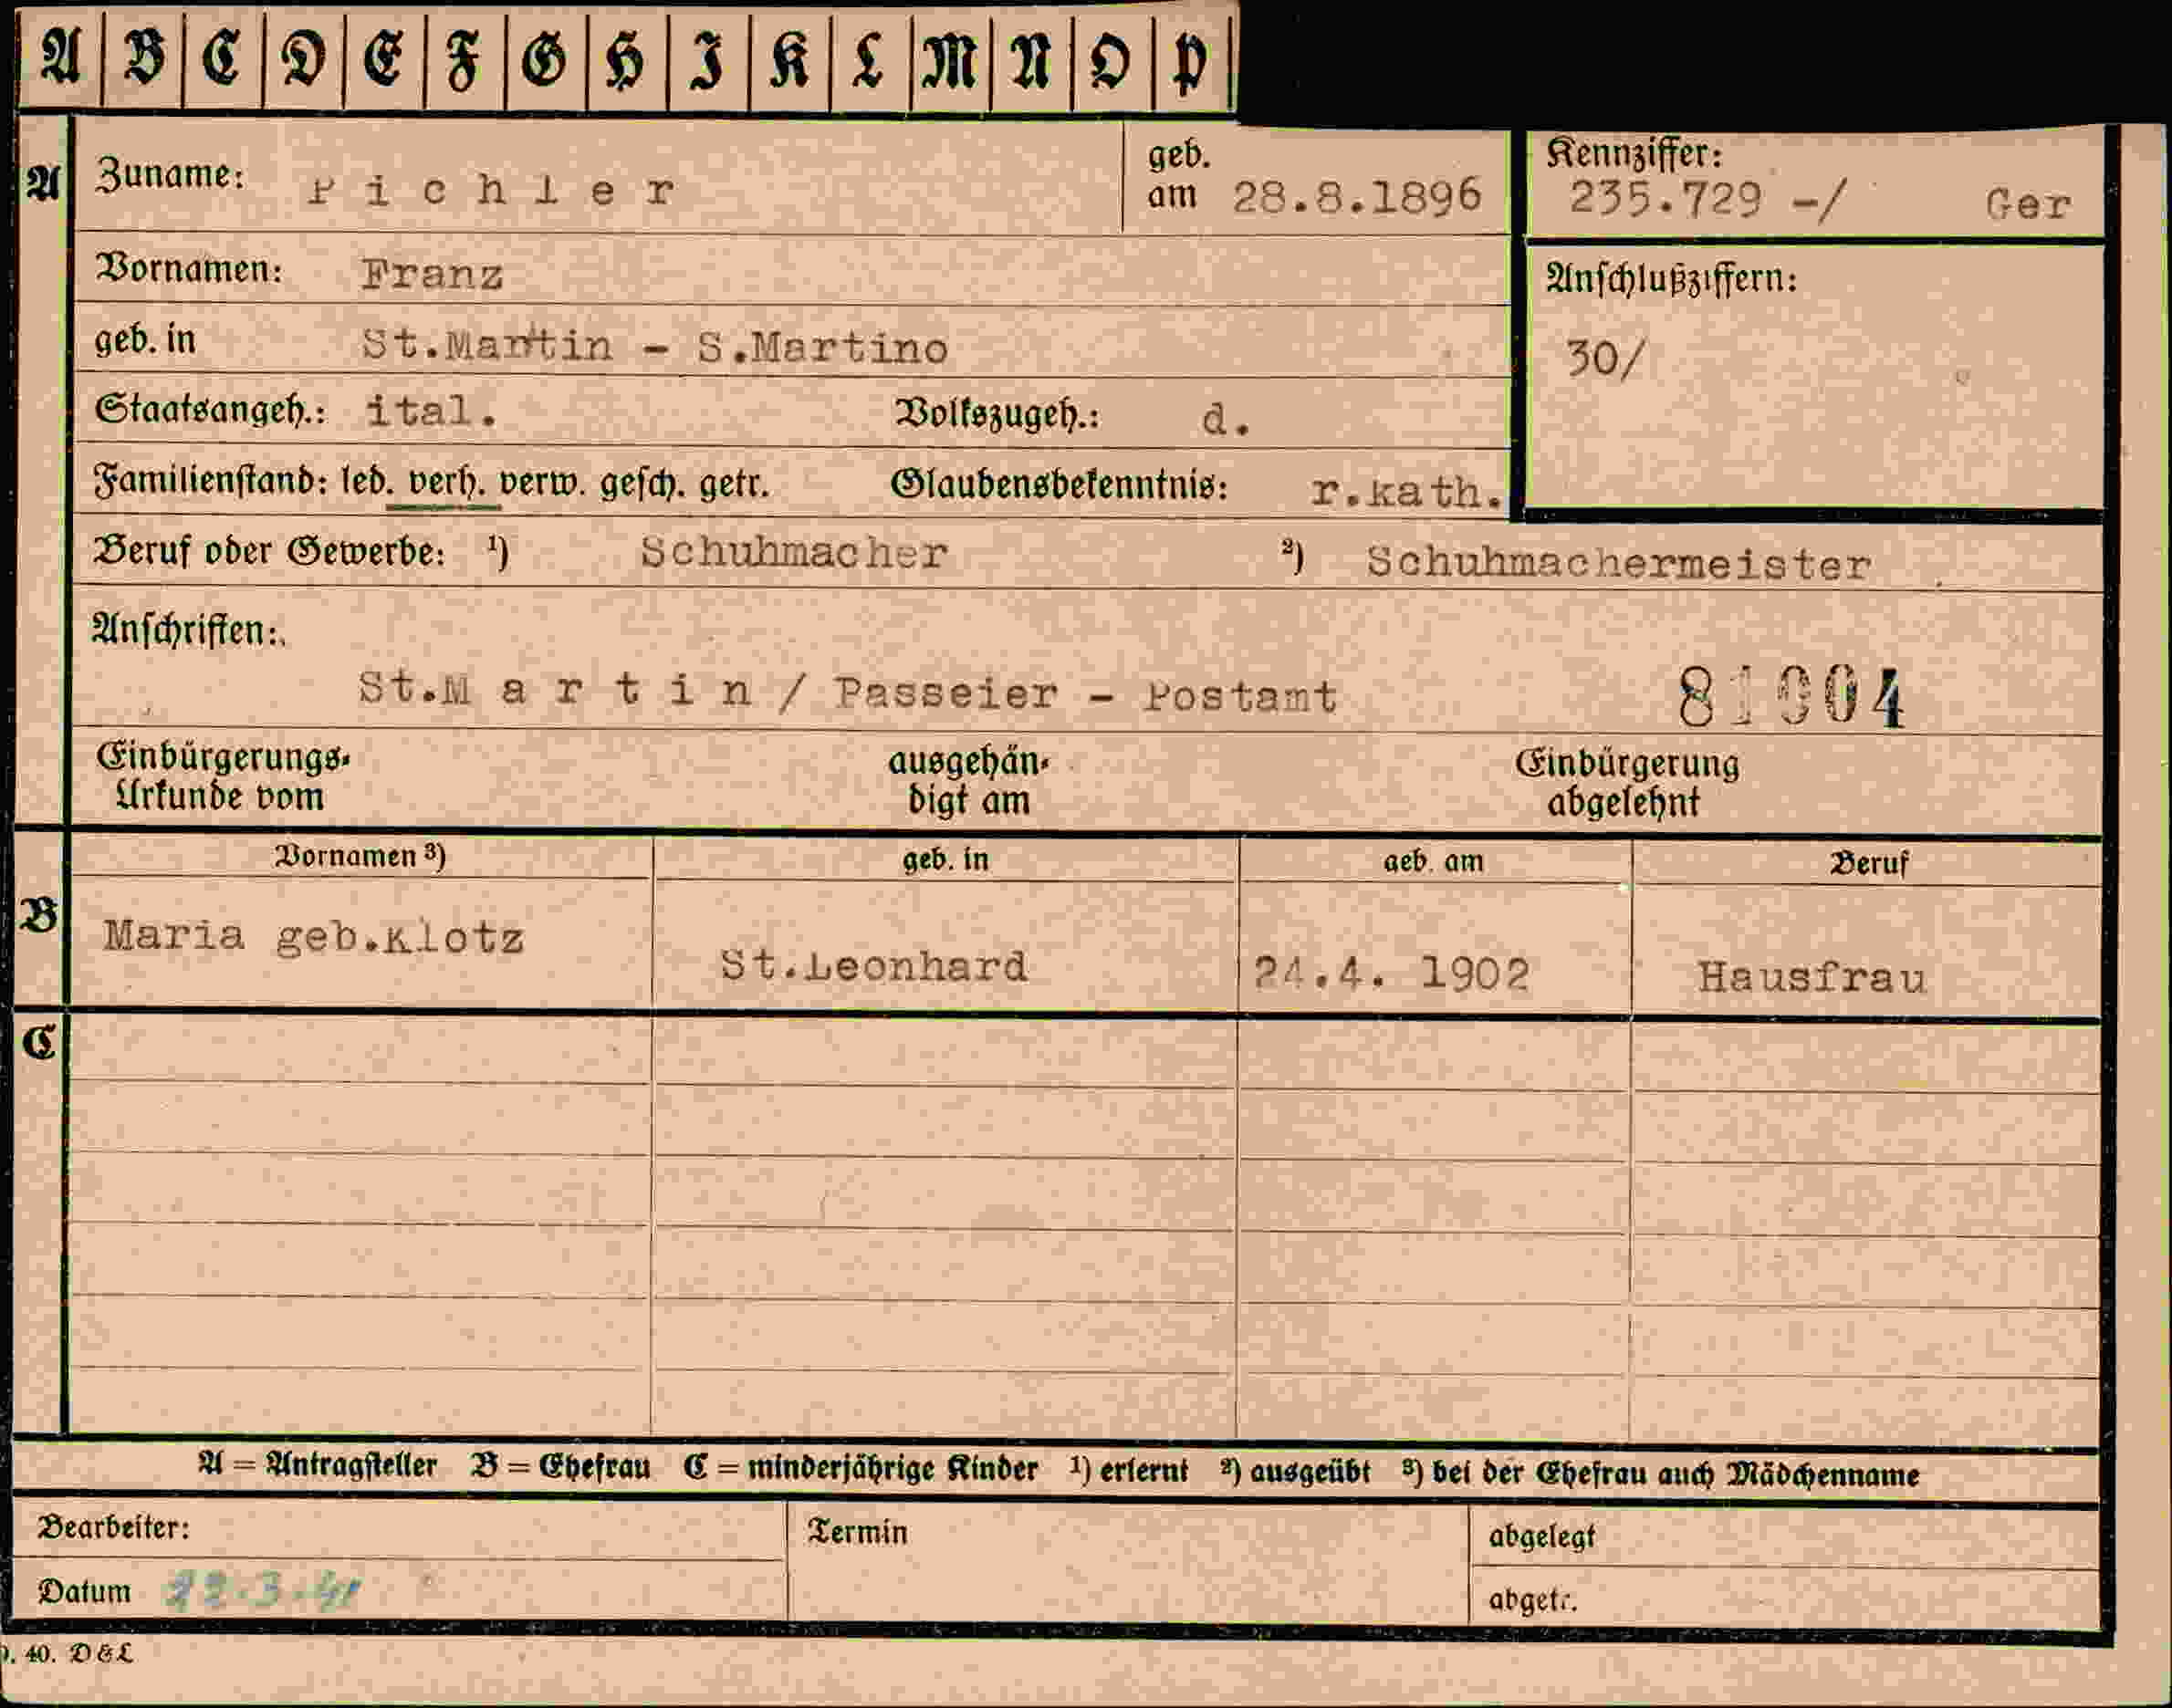 A B C D E F G H I K L M N O P
A Zuname: Pichler geb. am 28.8.1896 Kennziffer: 235.729 -/ Ger
Vornamen: Franz Anschlußziffern:
geb. in St.Martin - S.Martino 30/
Staatsangeh.: ital. Volkszugeh.: d.
Familienstand: led. verh. verw. gesch. getr. Glaubensbekenntnis: r.kath.
Beruf oder Gewerbe: ¹) Schuhmacher ²) Schuhmachermeister
Anschriften:
St.Martin / Passeier - Postamt 81004
Einbürgerungs- ausgehän- Einbürgerung
Urkunde vom digt am abgelehnt
B Vornamen ³) geb. in geb. am Beruf
Maria geb.Klotz St.Leonhard 24.4. 1902 Hausfrau
C
A = Antragsteller B = Ehefrau C = minderjährige Kinder ¹) erlernt ²) ausgeübt ³) bei der Ehefrau auch Mädchenname
Bearbeiter: Termin abgelegt
Datum abgetr.
40. D&L